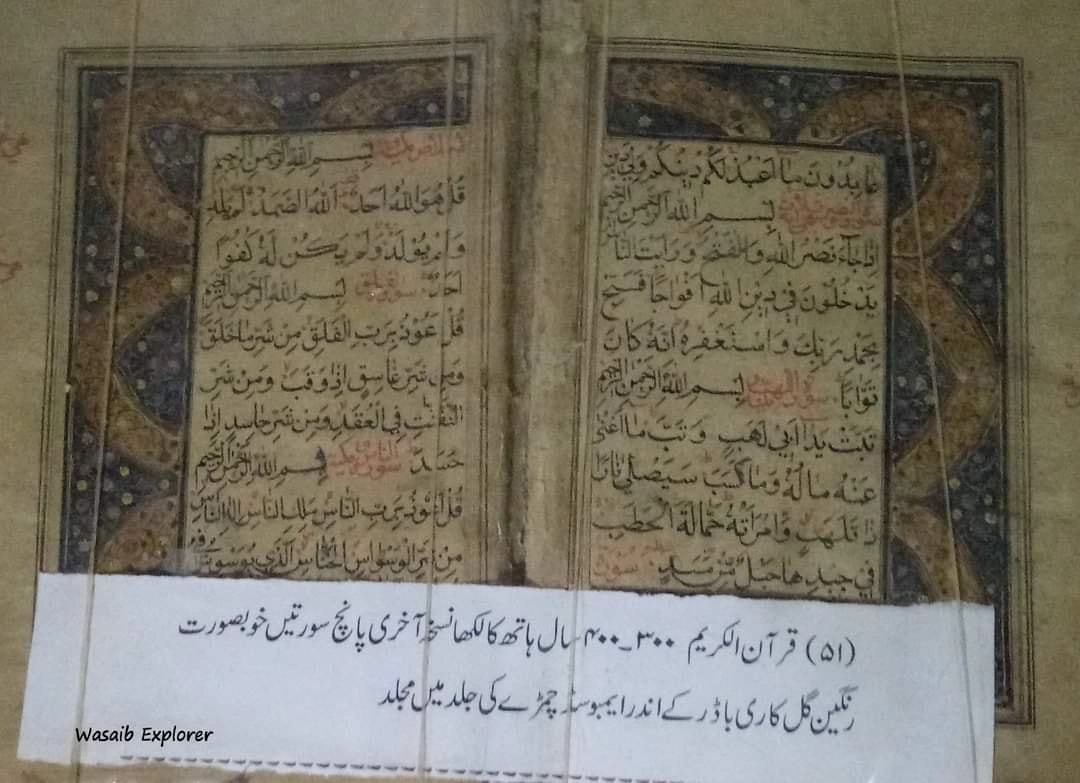 عَابِدُونَ مَا اَعْبُدُ لَكُمْ دِينُكُمْ وَلِيَ دِينِ
بِسْمِ اللهِ الرَّحْمٰنِ الرَّحِيمِ
اِذَا جَاءَ نَصْرُ اللهِ وَالْفَتْحُ وَرَاَيْتَ النَّاسَ
يَدْخُلُونَ فِي دِينِ اللهِ اَفْوَاجًا فَسَبِّحْ
بِحَمْدِ رَبِّكَ وَاسْتَغْفِرْهُ اِنَّهُ كَانَ
تَوَّابًا سورة بِسْمِ اللهِ الرَّحْمٰنِ الرَّحِيمِ
تَبَّتْ يَدَا اَبِي لَهَبٍ وَتَبَّ مَا اَغْنٰى
عَنْهُ مَالُهُ وَمَا كَسَبَ سَيَصْلٰى نَارًا
ذَاتَ لَهَبٍ وَامْرَاَتُهُ حَمَّالَةَ الْحَطَبِ
فِي جِيدِهَا حَبْلٌ مِنْ مَسَدٍ سورة
بِسْمِ اللهِ الرَّحْمٰنِ الرَّحِيمِ
قُلْ هُوَ اللهُ اَحَدٌ اَللهُ الصَّمَدُ لَمْ يَلِدْ
وَلَمْ يُولَدْ وَلَمْ يَكُنْ لَهُ كُفُوًا
اَحَدٌ سورة بِسْمِ اللهِ الرَّحْمٰنِ الرَّحِيمِ
قُلْ اَعُوذُ بِرَبِّ الْفَلَقِ مِنْ شَرِّ مَا خَلَقَ
وَمِنْ شَرِّ غَاسِقٍ اِذَا وَقَبَ وَمِنْ شَرِّ
النَّفّٰثٰتِ فِي الْعُقَدِ وَمِنْ شَرِّ حَاسِدٍ اِذَا
حَسَدَ سورة الناس بِسْمِ اللهِ الرَّحْمٰنِ الرَّحِيمِ
قُلْ اَعُوذُ بِرَبِّ النَّاسِ مَلِكِ النَّاسِ اِلٰهِ النَّاسِ
مِنْ شَرِّ الْوَسْوَاسِ الْخَنَّاسِ الَّذِي يُوَسْوِسُ فِي
(۵۱) قرآن الکریم ۳۰۰۔۴۰۰ سال ہاتھ کا لکھا نسخہ آخری پانچ سورتیں خوبصورت
رنگین گل کاری باڈر کے اندر ایمبوسڈ چمڑے کی جلد میں مجلد
Wasaib Explorer